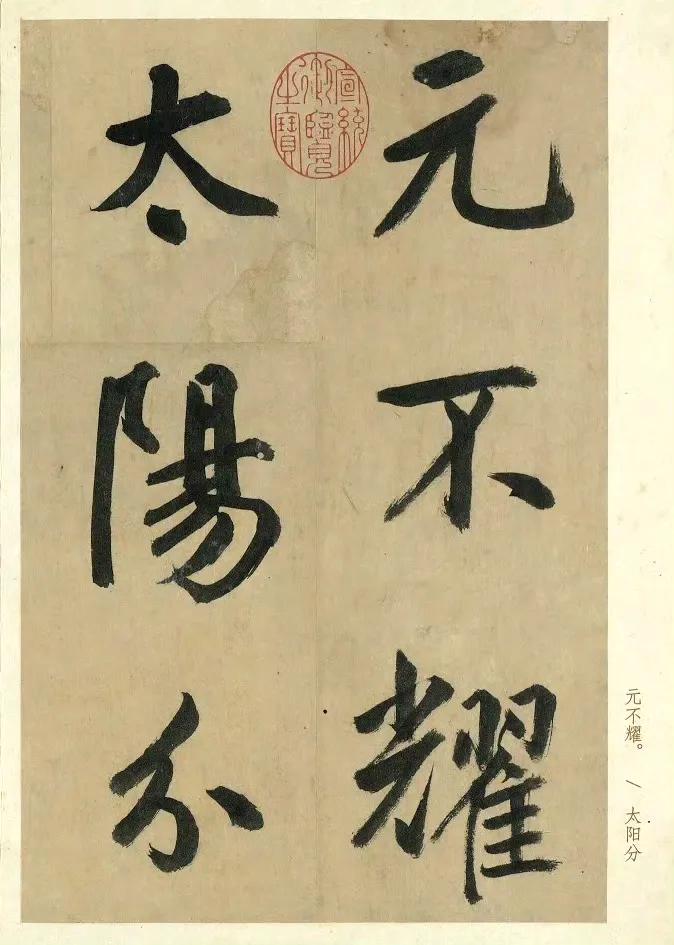 元不耀
太陽分
宣統御覽之寶
元不耀。 / 太阳分